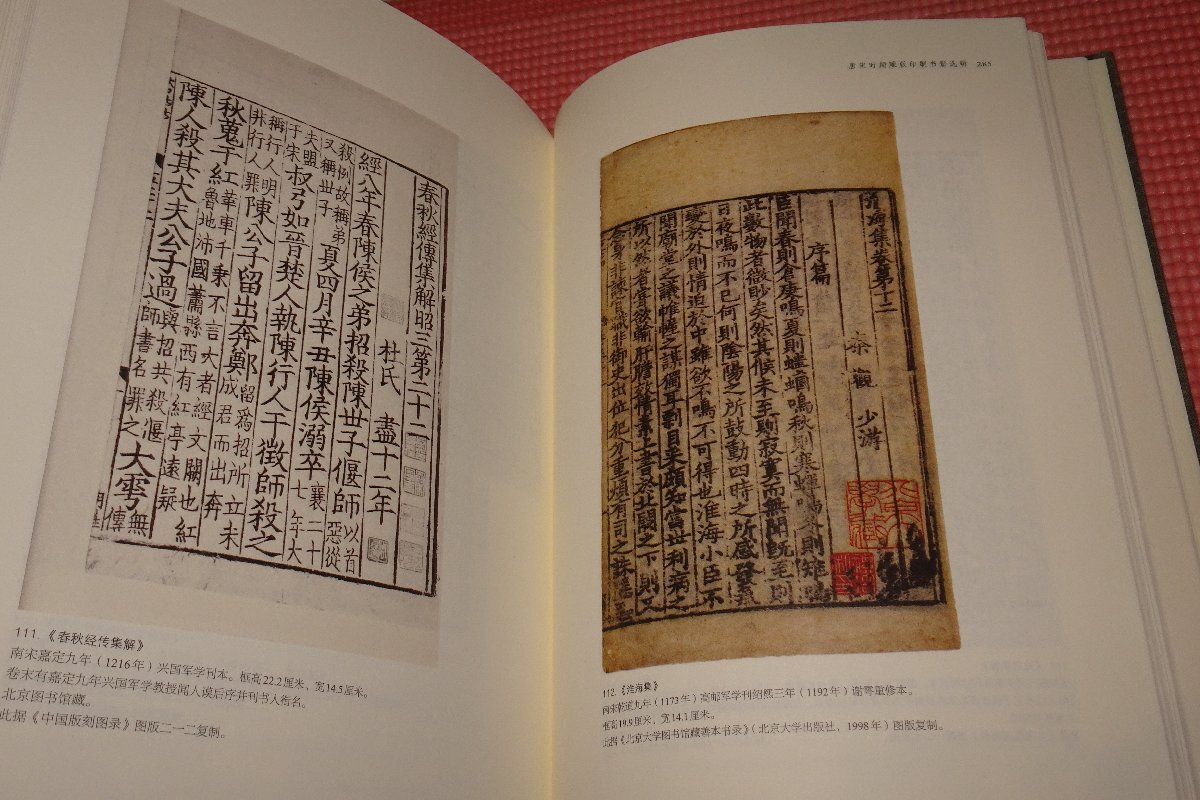 春秋經傳集解昭三第二十二
杜氏 盡十二年
經八年春陳侯之弟招殺陳世子偃師以首惡從
殺例故稱弟又稱世子夏四月辛丑陳侯溺卒襄二十七年大
夫盟于宋叔弓如晉楚人執陳行人干徵師殺之
稱行人明非行人罪陳公子留出奔鄭留爲招所立未成君而出奔
秋蒐于紅革車千乘不言大者經文闕也紅魯地沛國蕭縣西有紅亭遠疑
陳人殺其大夫公子過與招共殺偃師書名罪之大雩無傳
111.《春秋经传集解》
南宋嘉定九年（1216年）兴国军学刊本。框高22.2厘米，宽14.5厘米。
卷末有嘉定九年兴国军学教授闻人谟后序并刊书人衔名。
北京图书馆藏。
此据《中国版刻图录》图版二一二复制。
唐宋时期雕版印刷书影选明 285
淮海集卷第十二
秦觀 少游
序篇
臣聞春則倉庚鳴夏則螻蟈鳴秋則寒蟬鳴冬則雉鳴
此數物者微眇矣然其候未至則寂寞而無聞既至則
日夜鳴而不已何則陰陽之所鼓動四時之所感發氣
變於外則情迫於中雖欲不鳴不可得也淮海小臣不
聞廟堂之議帷幄之謀獨耳剽目采頗知當世利病之
所以然者嘗欲輸肝膽效情素上書於北闕之下則又
112.《淮海集》
南宋乾道九年（1173年）高邮军学刊绍熙三年（1192年）谢雩重修本。
框高19.9厘米，宽14.1厘米。
此据《北京大学图书馆藏善本书录》（北京大学出版社，1998年）图版复制。